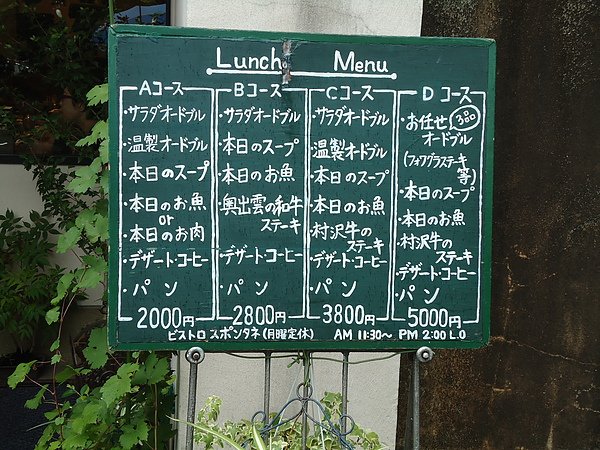 Lunch Menu
Aコース
・サラダオードブル
・温製オードブル
・本日のスープ
・本日のお魚
or
・本日のお肉
・デザート・コーヒー
・パン
2000円
Bコース
・サラダオードブル
・本日のスープ
・本日のお魚
・奥出雲の和牛
ステーキ
・デザート・コーヒー
・パン
2800円
Cコース
・サラダオードブル
・温製オードブル
・本日のスープ
・本日のお魚
・村沢牛の
ステーキ
・デザート・コーヒー
・パン
3800円
Dコース
・お任せ 3品
オードブル
(フォワグラステーキ
等)
・本日のスープ
・本日のお魚
・村沢牛の
ステーキ
・デザート・コーヒー
・パン
5000円
ビストロ スポンタネ (月曜定休) AM 11:30~ PM 2:00 L.O